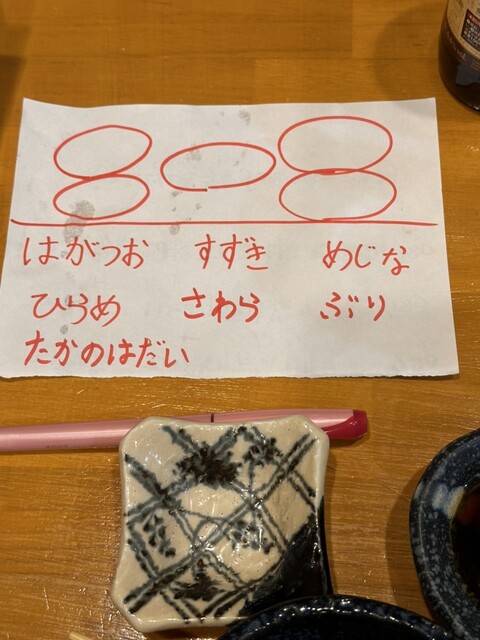 はがつお すずき めじな
ひらめ さわら ぶり
たかのはだい